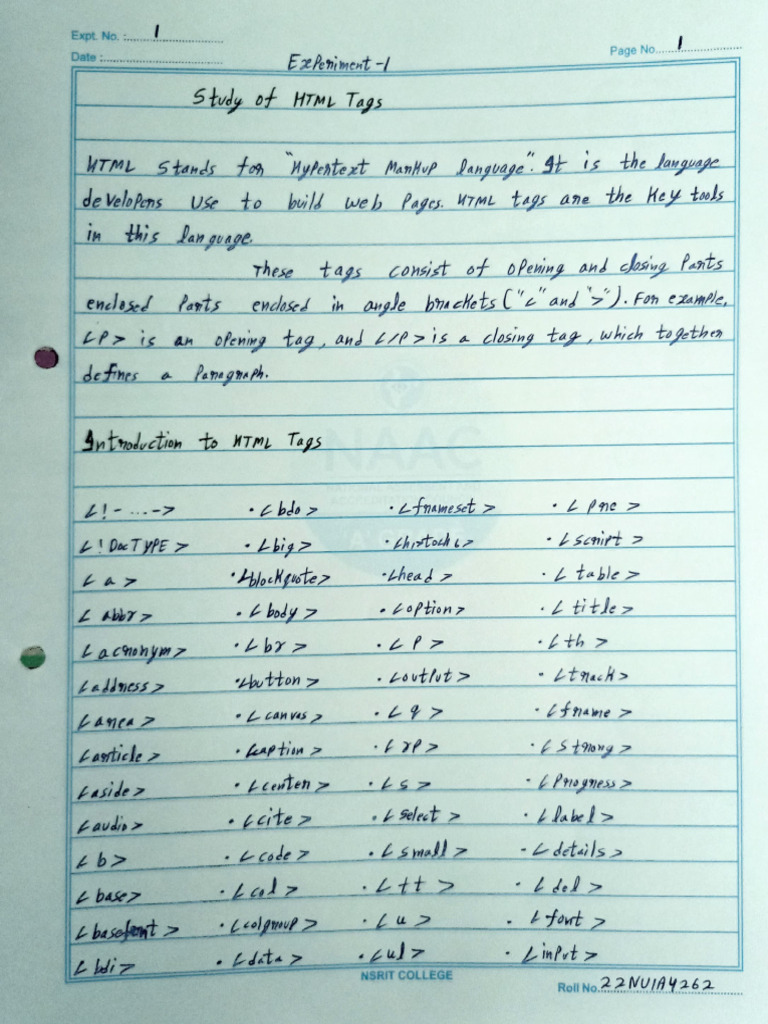 Expt. No. : 1
Page No. 1
Date :
Experiment-1
Study of HTML Tags
HTML Stands for "Hypertext MarKup language". It is the language
developers use to build web Pages. HTML tags are the Key tools
in this language.
These tags consist of opening and closing Parts
enclosed Parts enclosed in angle brackets ("<" and ">"). For example,
<P> is an opening tag, and </P> is a closing tag, which together
defines a Paragraph.
Introduction to HTML Tags
<!-...-> · <bdo> · <frameset> · <pre>
<!DocTYPE> · <big> · · <script>
<a> · <blockquote> · <head> · <table>
<abbr> · <body> · <option> · <title>
<acronym> · · <P> · <th>
<address> · <button> · <output> · <track>
<area> · <canvas> · <q> · <frame>
<article> · <caption> · <rp> · <Strong>
<aside> · <center> · <s> · <Progress>
<audio> · <cite> · <select> · <label>
<b> · <code> · <small> · <details>
<base> · <col> · <tt> · <del>
<basefont> · <colgroup> · <u> · <font>
<bdi> · <data> · <ul> · <input>
NSRIT COLLEGE
Roll No. 22NU1A4262
NAAC